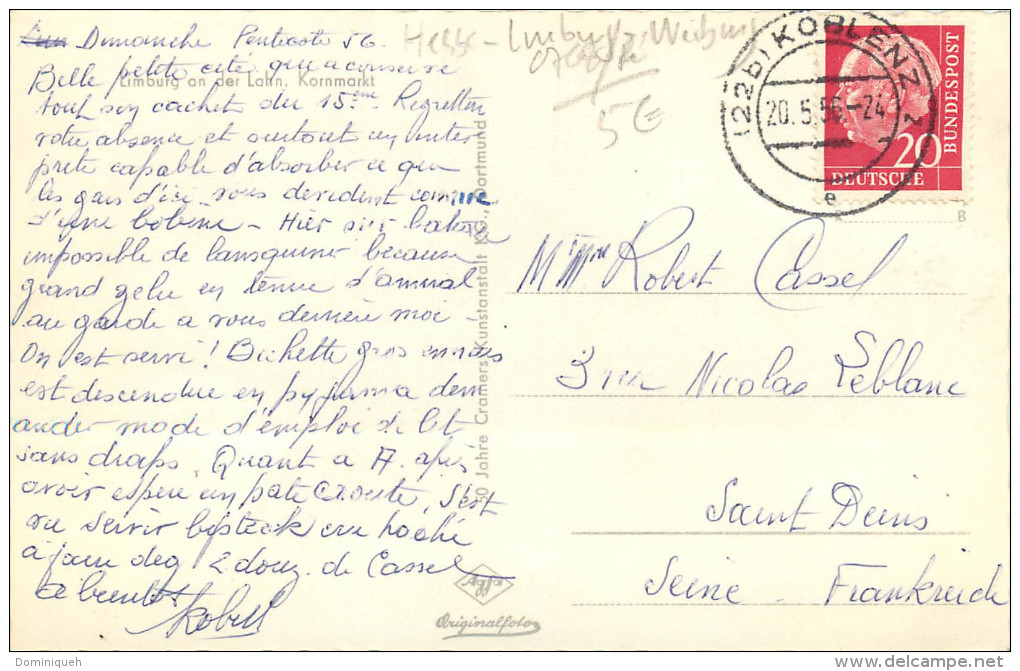 Dimanche Pentecote 56.
Belle petite cite qui a conservé
tout son cachet du 15eme. Regrettons
votre absence et surtout un inter
prete capable d'absorber ce que
les gars d'ici vous devident comme
d'une bobine - Hier sur bateau
impossible de because
grand gelu en tenue d'amiral
au garde a vous derrière moi -
On est servi! Bichette gros ennuis
est descendue en pyjama dem
ander mode d'emploi de lit
sans draps. Quant a A. après
avoir espéré un pate Croute, s'est
vu servir bifsteak cru haché
à jeun deg 2 douz. de Cassel
a bientot
Limburg an der Lahn, Kornmarkt
50 Jahre Cramers Kunstanstalt KG., Dortmund
Agfa
Originalfoto
Hess - Limburg - Weilburg
5€
(22b) KOBLENZ 2
20.5.56-24
e
20
DEUTSCHE
BUNDESPOST
B
M Mme Robert Cassel
3 rue Nicolas Leblanc
Saint Denis
Seine - Frankreich
Dominiqueh
delcampe.net